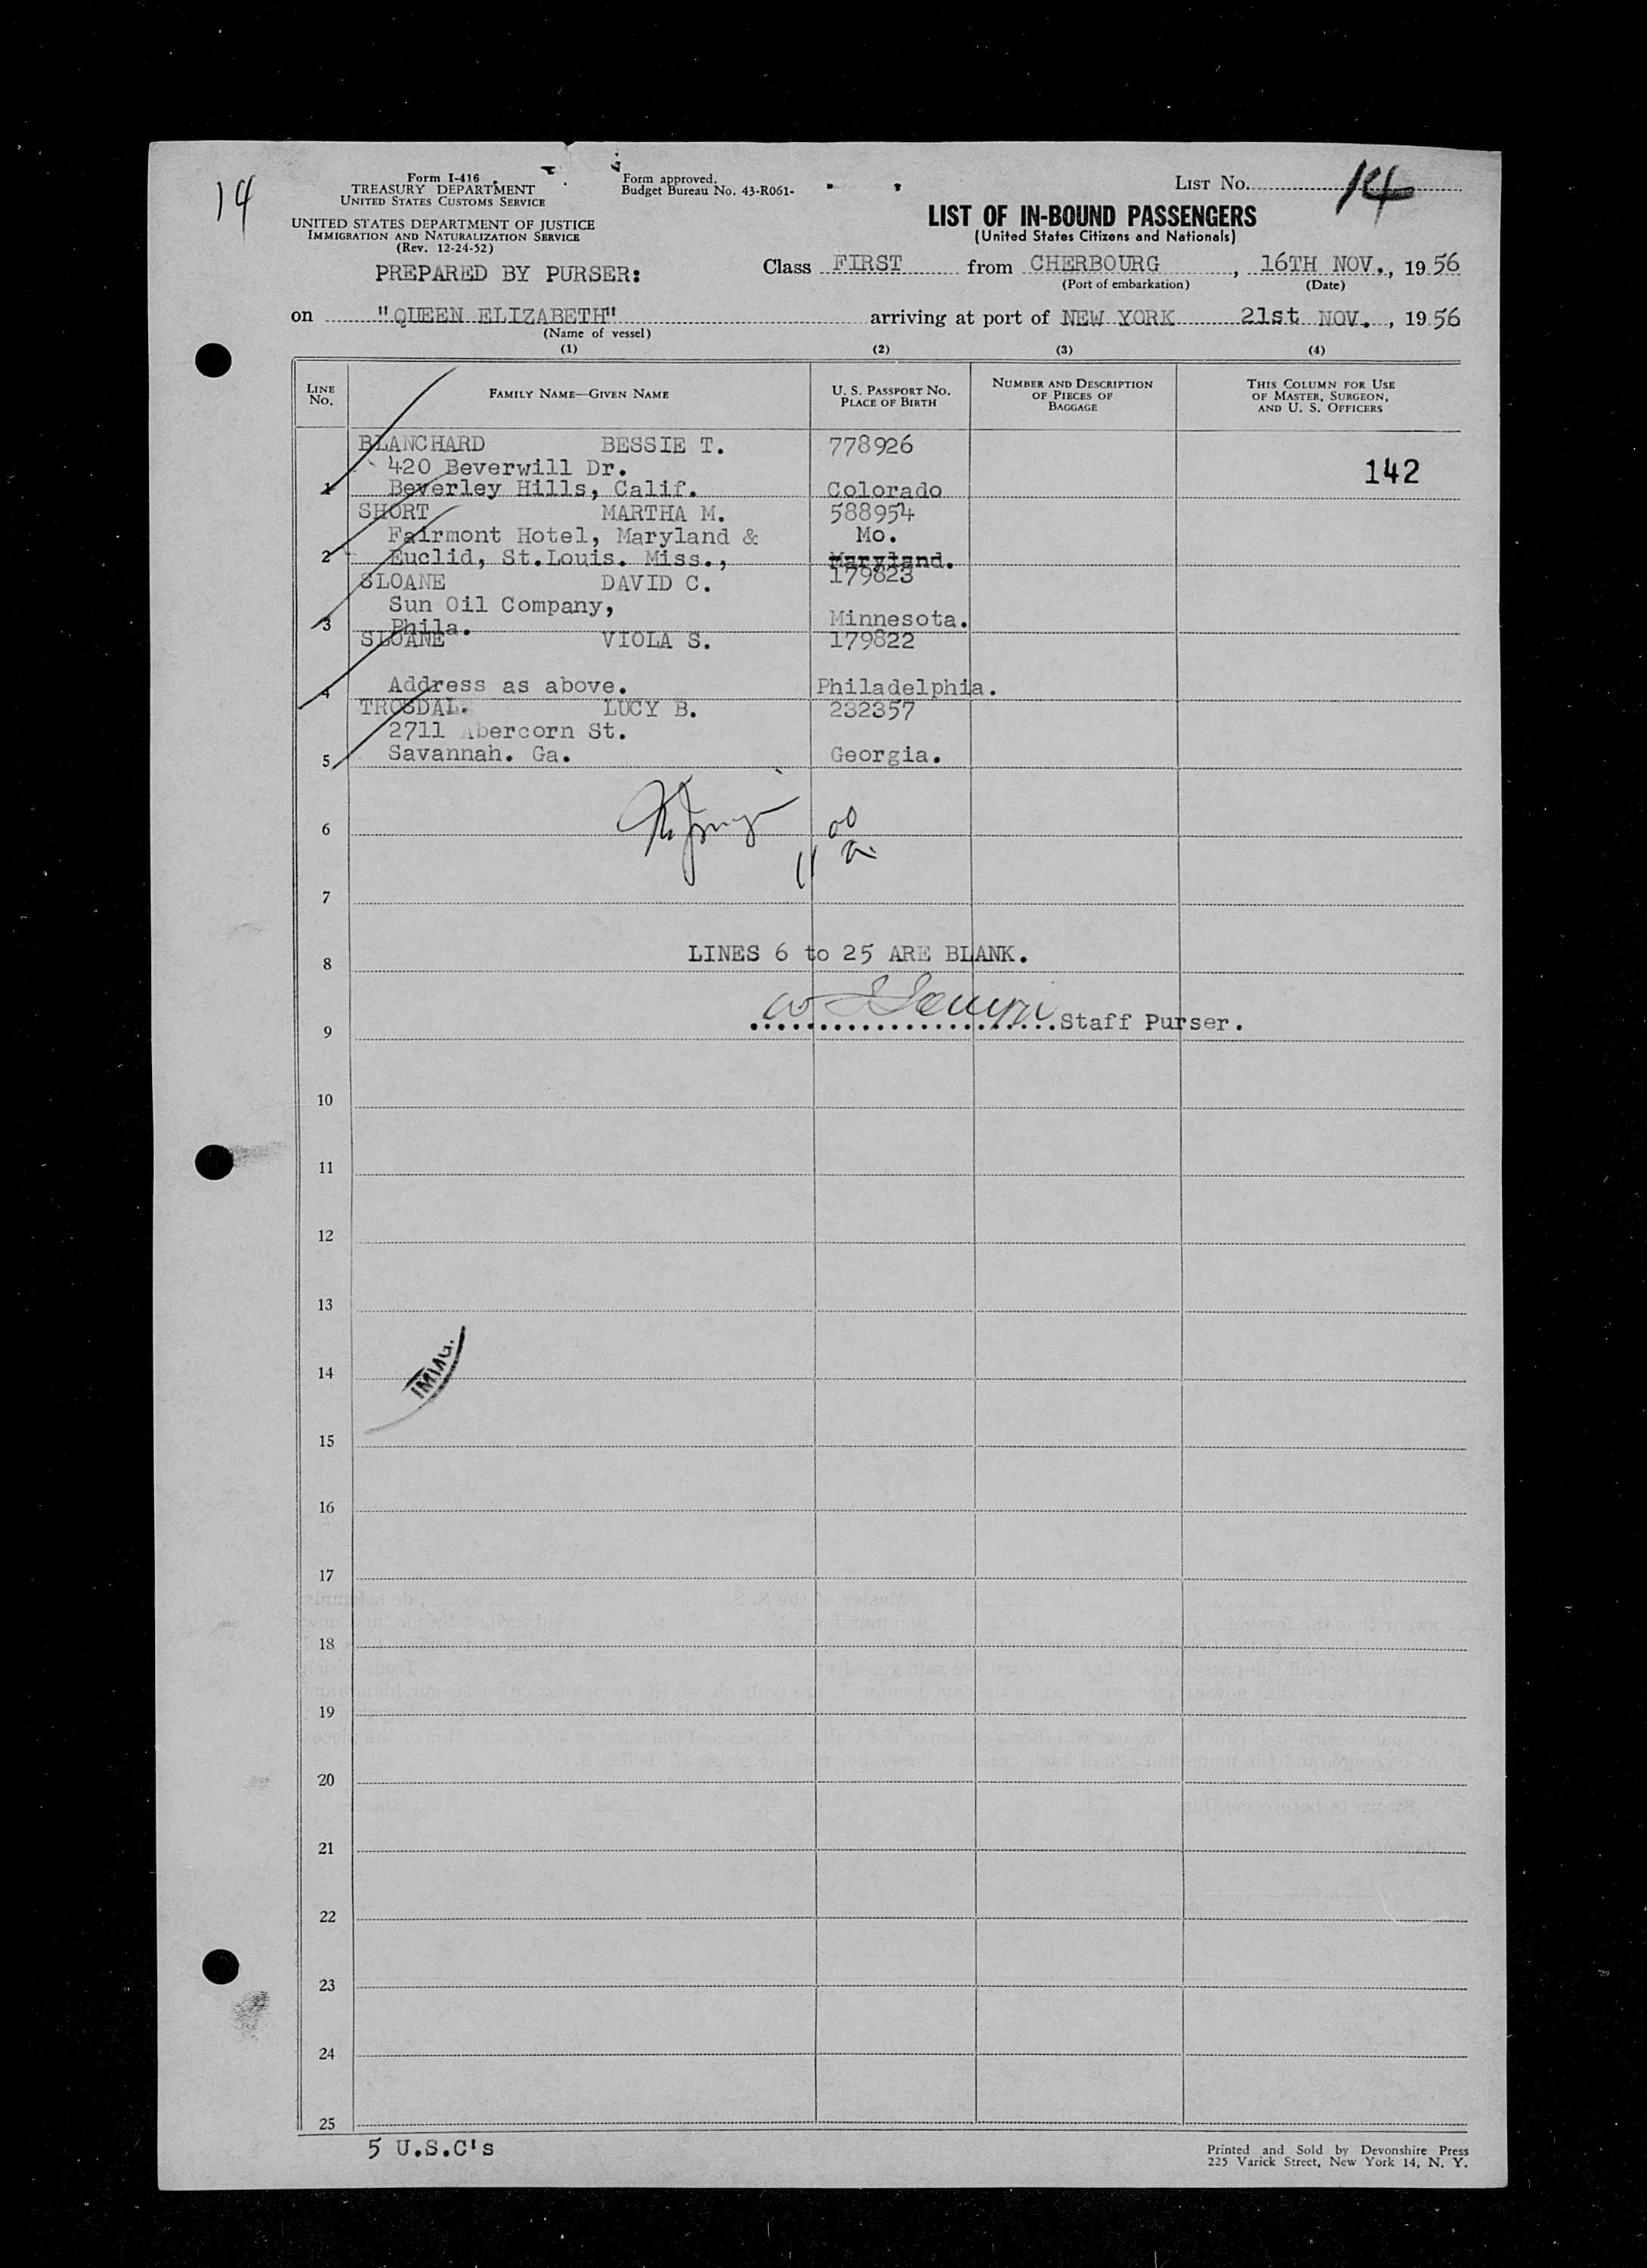 14
Form I-416
TREASURY DEPARTMENT
UNITED STATES CUSTOMS SERVICE
UNITED STATES DEPARTMENT OF JUSTICE
IMMIGRATION AND NATURALIZATION SERVICE
(Rev. 12-24-52)
PREPARED BY PURSER:
Form approved.
Budget Bureau No. 43-R061-
LIST No. 14
LIST OF IN-BOUND PASSENGERS
(United States Citizens and Nationals)
Class FIRST from CHERBOURG, 16TH NOV., 1956
(Port of embarkation) (Date)
on "QUEEN ELIZABETH" arriving at port of NEW YORK 21st NOV., 1956
(Name of vessel)
(1) (2) (3) (4)
LINE No.
FAMILY NAME—GIVEN NAME
U. S. PASSPORT NO.
PLACE OF BIRTH
NUMBER AND DESCRIPTION
OF PIECES OF
BAGGAGE
THIS COLUMN FOR USE
OF MASTER, SURGEON,
AND U. S. OFFICERS
BLANCHARD BESSIE T. 778926
420 Beverwill Dr. 142
1 Beverley Hills, Calif. Colorado
SHORT MARTHA M. 588954
Fairmont Hotel, Maryland & Mo.
2 Euclid, St.Louis. Miss., Maryland.
SLOANE DAVID C. 179823
Sun Oil Company,
3 Phila. Minnesota.
SLOANE VIOLA S. 179822
4 Address as above. Philadelphia.
TROSDAL. LUCY B. 232357
2711 Abercorn St.
5 Savannah. Ga. Georgia.
6
7
LINES 6 to 25 ARE BLANK.
8
9 Staff Purser.
10
11
12
13
IMMIG.
14
15
16
17
18
19
20
21
22
23
24
25
5 U.S.C's
Printed and Sold by Devonshire Press
225 Varick Street, New York 14, N. Y.